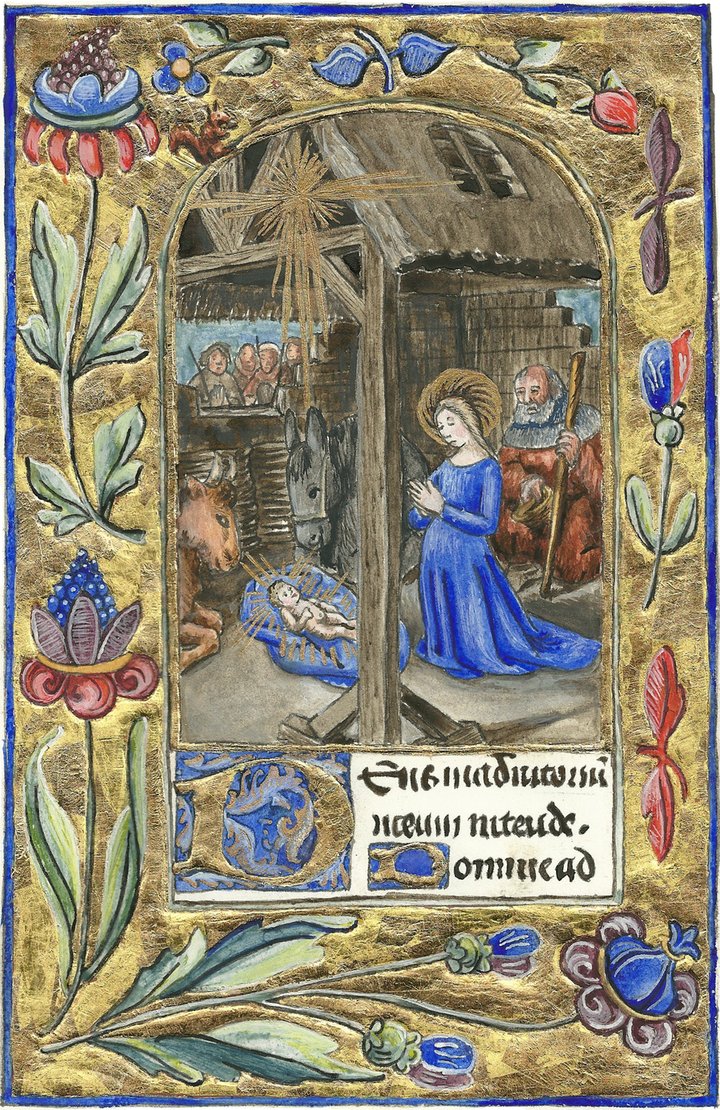 Deus in adiutoriū
meum intende.
Domine ad